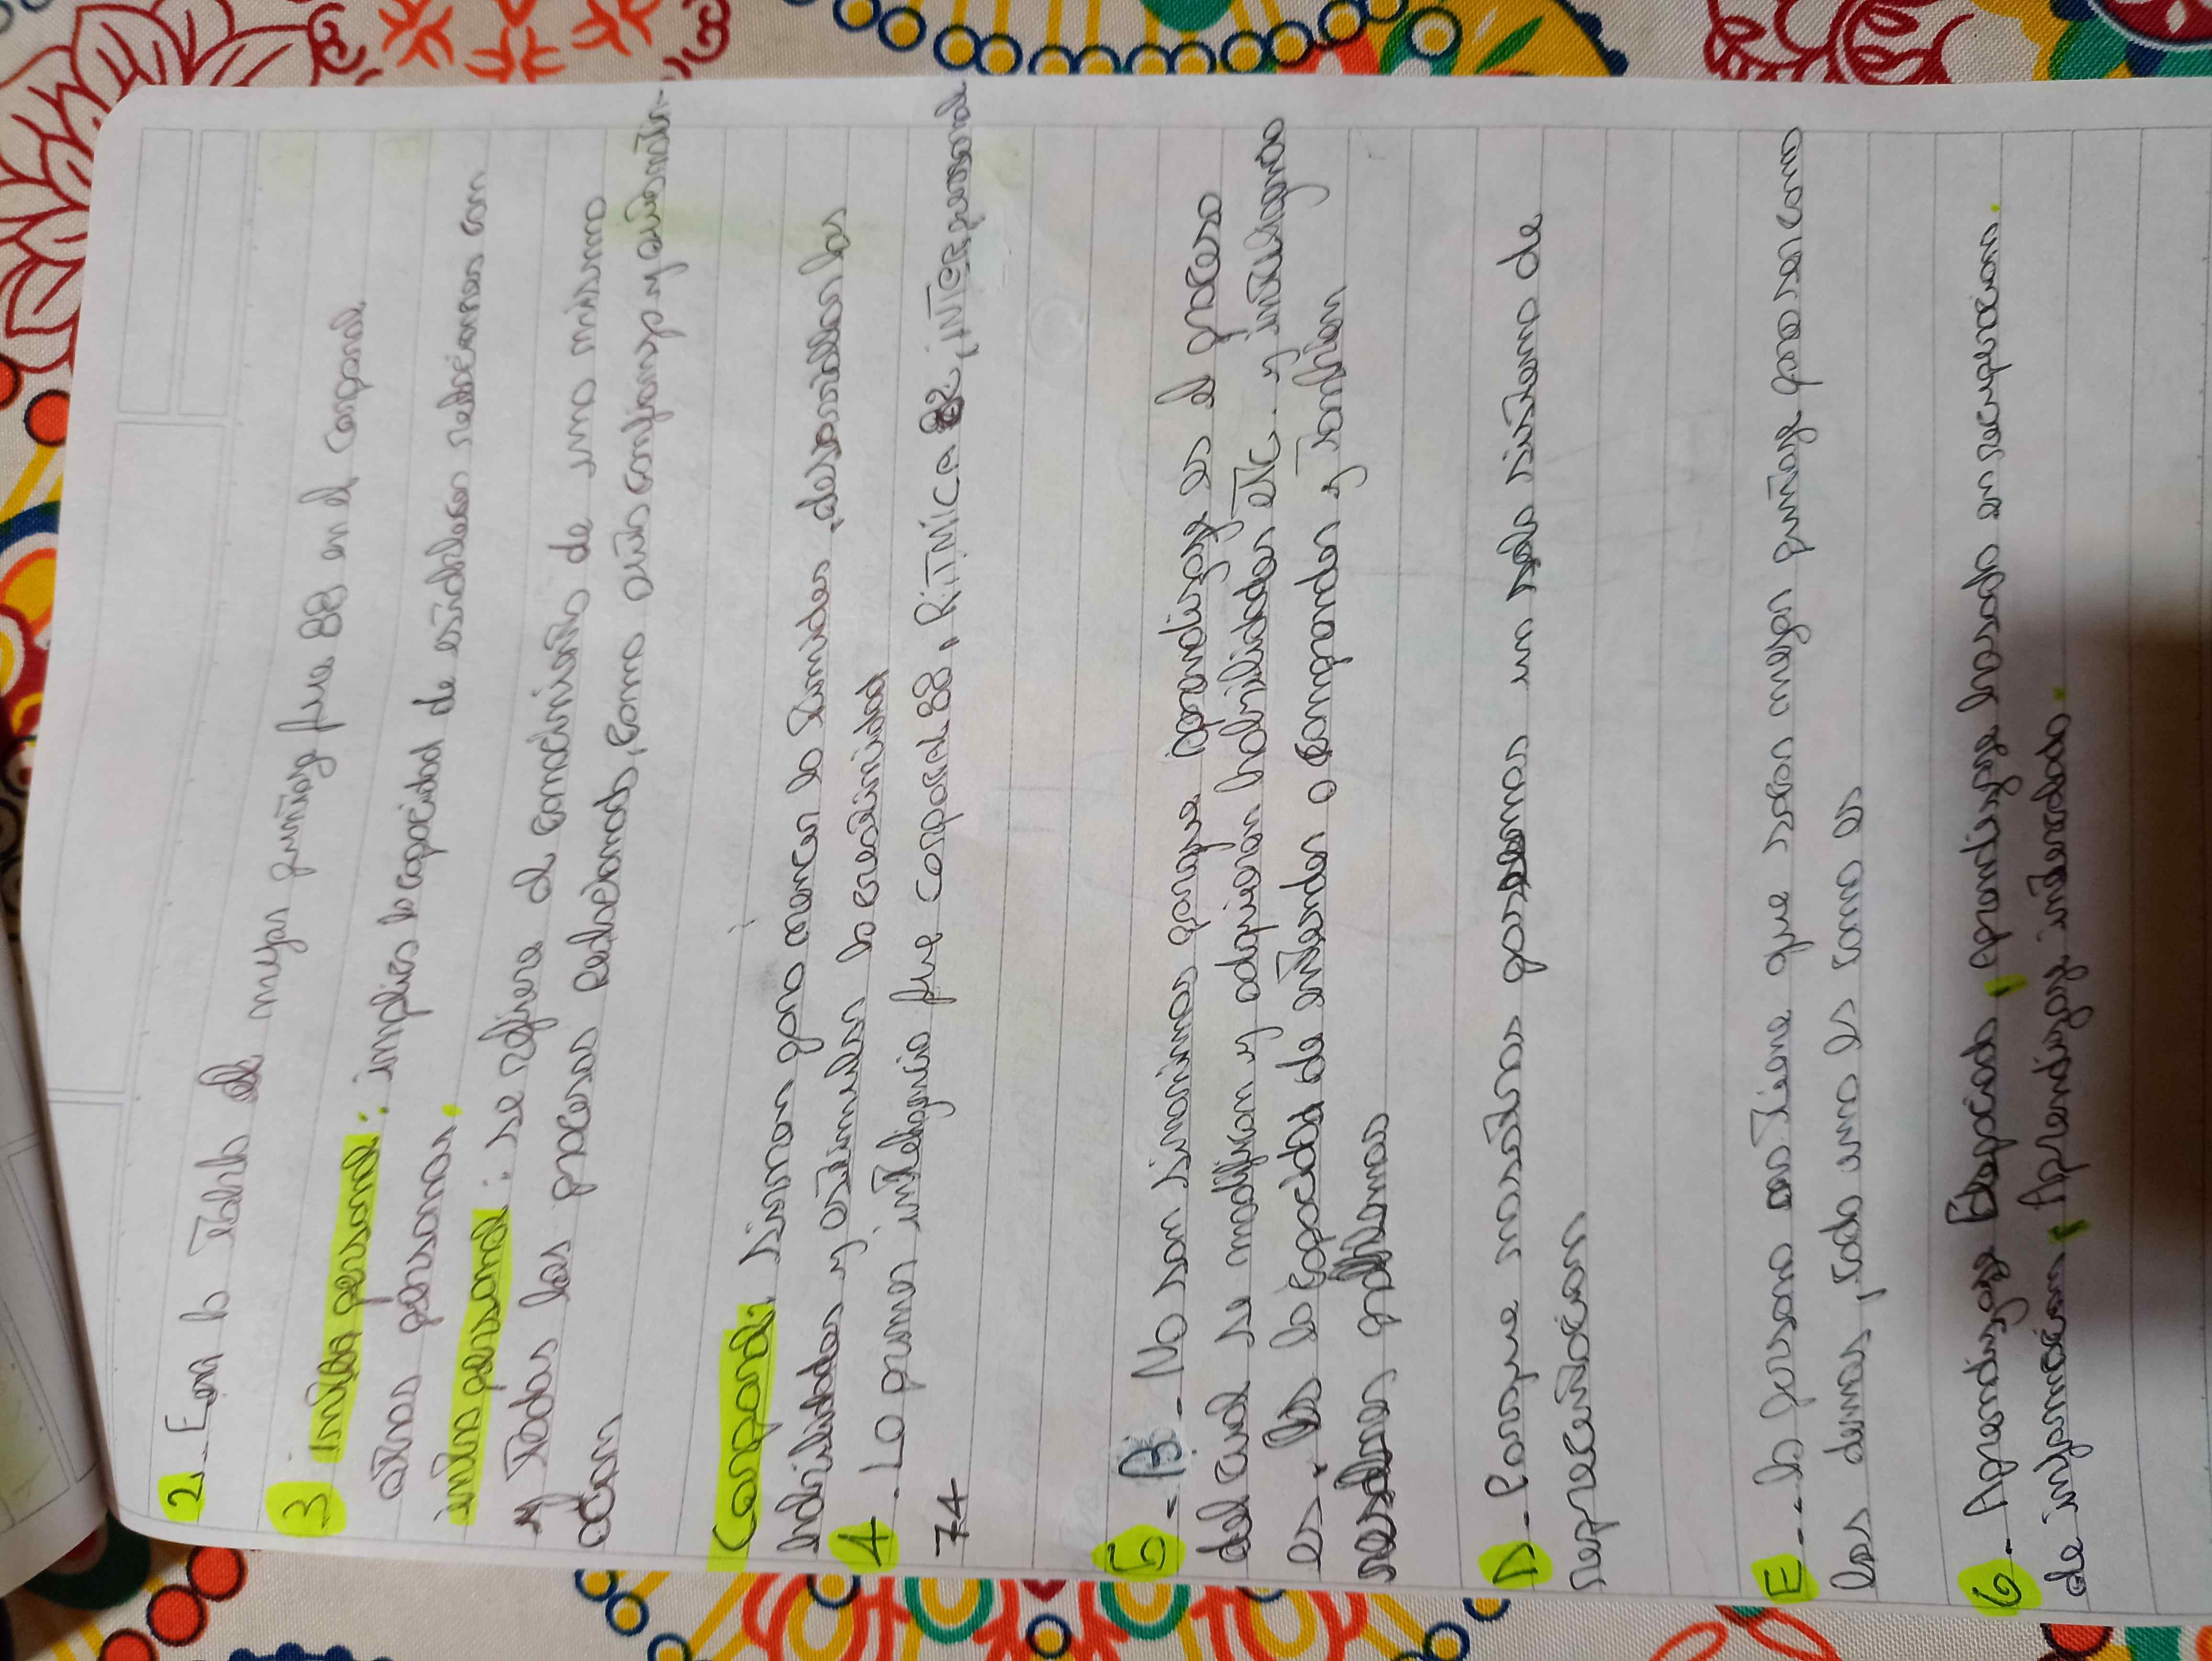 2._ En la tabla el mejor puntaje fue 88 en el Corporal.
3 inter personal: implica la capacidad de establecer relaciones con
otras personas.
intra personal: se refiere al conocimiento de uno mismo
y todos los procesos relacionados, como auto confianza y auto motiva-
cion
Corporal: Sirven para vencer la timidez, desarrollar las
habilidades y estimular la creatividad
4 - La primer inteligencia fue corporal 88, RiTMiCA 82, iNTERpersonal
74
5 - B - No son sinonimos porque aprendizaje es el proceso
del cual se modifican y adquieren habilidades ETC. y inteligencia
es - la capacidad de entender o comprender y tambien
resolver problemas
D - Porque nosotros poseemos un solo sistema de
representacion
E - - la persona no tiene que sacar mayor puntaje para ser como
los demas, cada uno es como es
6 - Aprendizaje Espaciado, Aprendizaje basado en recuperacion
de informacion, Aprendizaje intercalado.